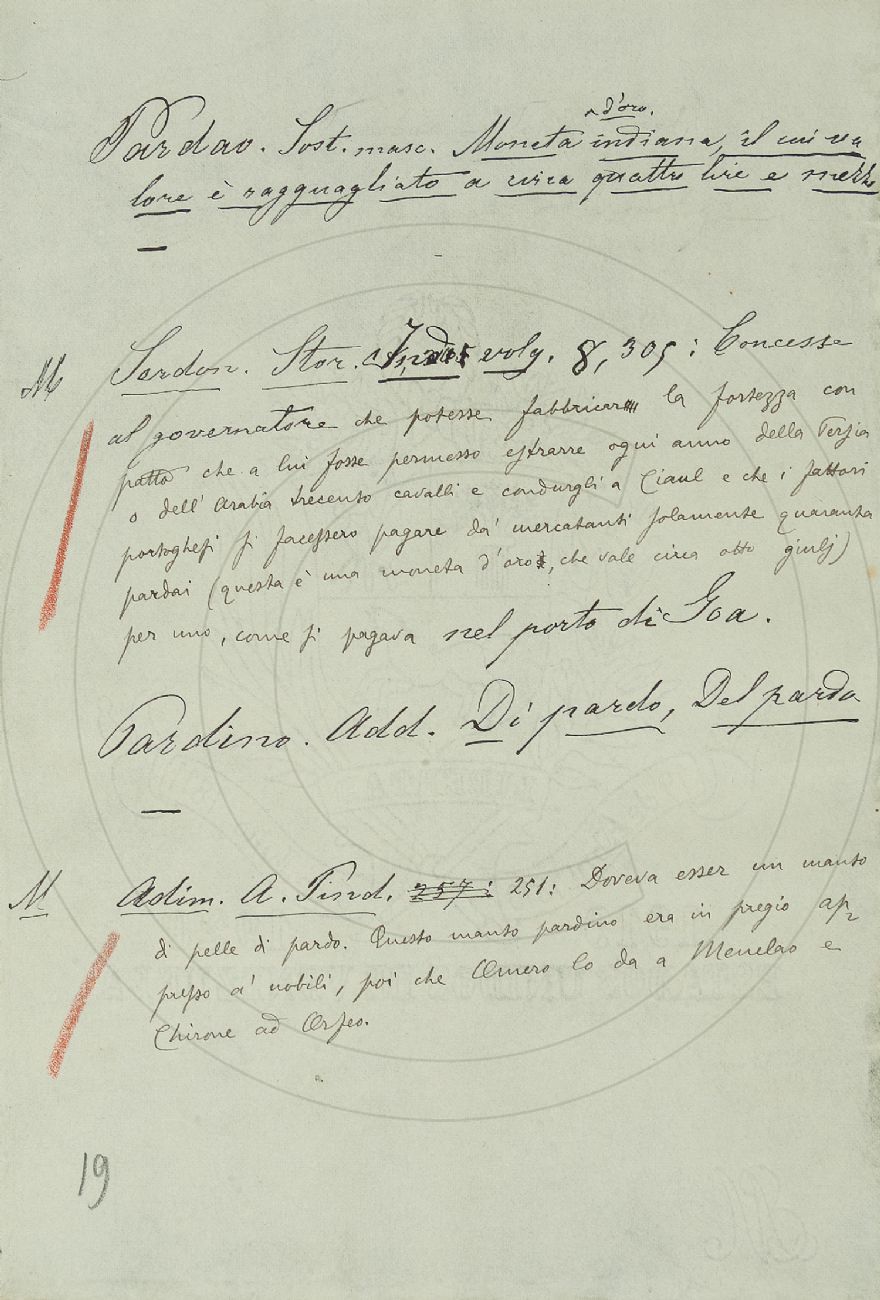 ^ d'oro.
Pardao. Sost. masc. Moneta indiana, il cui va
lore è ragguagliato a circa quattro lire e mezzo
—
M Serdon. Stor. Ind. volg. 8, 305: Concesse
al governatore che potesse fabbricar la fortezza con
patto che a lui fosse permesso estrarre ogni anno della Persia
o dell'Arabia trecento cavalli e condurgli a Ciaul e che i fattori
portoghesi si facessero pagare da' mercatanti solamente quaranta
pardai (questa è una moneta d'oro, che vale circa otto giulj)
per uno, come si pagava nel porto di Goa.
Pardino. Add. Di pardo, Del pardo
—
M Adim. A. Pind. 257: 251: Doveva esser un manto
di pelle di pardo. Questo manto pardino era in pregio ap-
presso a' nobili, poi che Omero lo da a Menelao e
Chirone ad Orfeo.
19